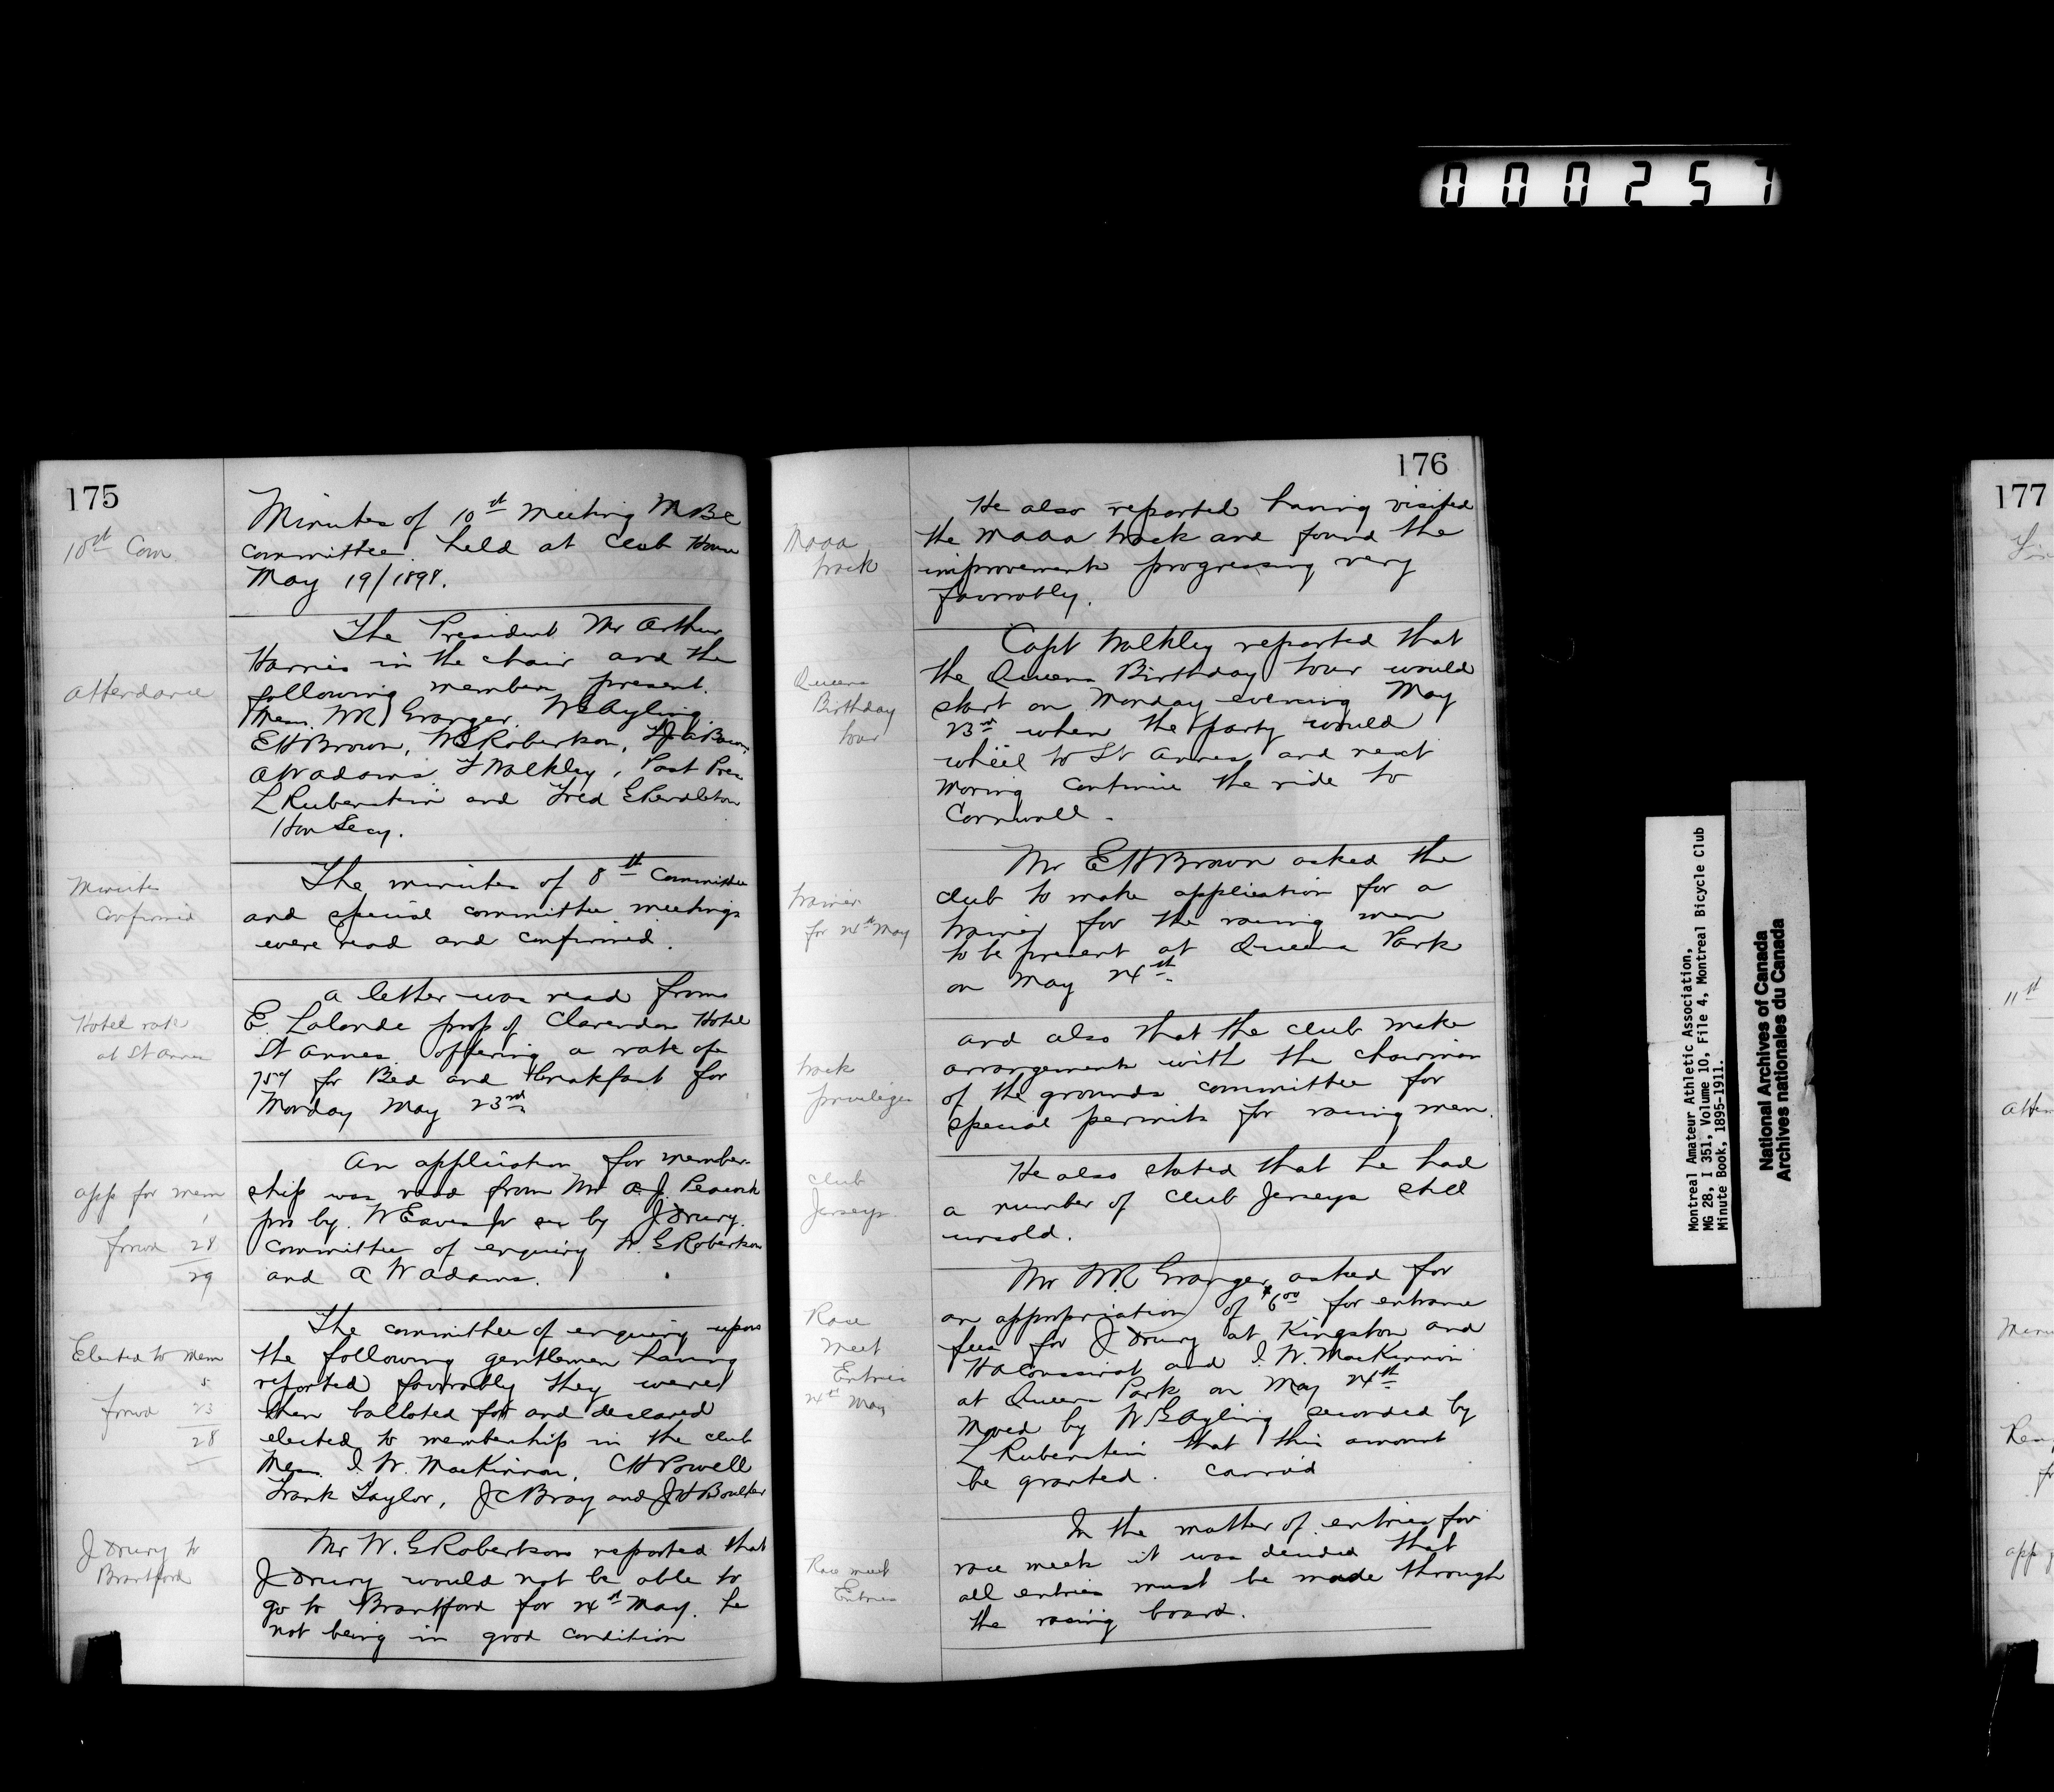 000257
175
10th Com.
Minutes of 10th Meeting MBC
committee held at Club House
May 19/1898.
Attendance
The President Mr Arthur
Harris in the chair and the
following members present.
Mess. WR Granger. WG Ayling
EH Brown, WG Robertson,
AW Adams. F Walkley, Past Pres
L Rubenstein and Fred G Pendleton
Hon Secy.
Minutes
Confirmed
The minutes of 8th Committee
and special committee meetings
were read and confirmed.
Hotel rate
at St Annes
A letter was read from
E. Lalonde prop of Clarendon Hotel
St Annes. offering a rate of
75¢ for Bed and Breakfast for
Monday May 23rd
app for mem
1
forwd 28
29
An application for member-
ship was read from Mr A.J. Peacock
pro by. W Eaves Jr sec by J Drury.
Committee of enquiry W. G Robertson
and A W Adams.
Elected to mem
5
forwd 23
28
The committee of enquiry upon
the following gentlemen having
reported favorably they were
then balloted for and declared
elected to membership in the club
Mess. I. W. MacKinnon, CH Powell
Frank Taylor, JC Bray and JH Boulter
J Drury to
Brantford
Mr W. G Robertson reported that
J Drury would not be able to
go to Brantford for 24th May. he
not being in good condition
176
Maaa
track
He also reported having visited
the Maaa track and found the
improvements progressing very
favorably.
Queens
Birthday
tour
Capt Walkley reported that
the Queens Birthday tour would
start on Monday evening May
23rd when the party would
wheel to St Annes and next
moring continue the ride to
Cornwall.
trainer
for 24th May
Mr EH Brown asked the
club to make application for a
trainer for the racing men
to be present at Queens Park
on May 24th.
track
privileges
and also that the club make
arrangements with the chairman
of the grounds committee for
special permits for racing men.
club
Jerseys
He also stated that he had
a number of club Jerseys still
unsold.
Race
Meet
Entries
24th May
Mr W.R Granger asked for
an appropriation of $6.00 for entrance
fees for J Drury at Kingston and
and I. W. MacKinnon
at Queens Park on May 24th
Moved by W G Ayling seconded by
L Rubenstein that this amount
be granted. Carried
Race meet
Entries
In the matter of entries for
race meets it was decided that
all entries must be made through
the racing board.
Montreal Amateur Athletic Association,
MG 28, I 351, Volume 10, File 4, Montreal Bicycle Club
Minute Book, 1895-1911.
National Archives of Canada
Archives nationales du Canada
177
11th